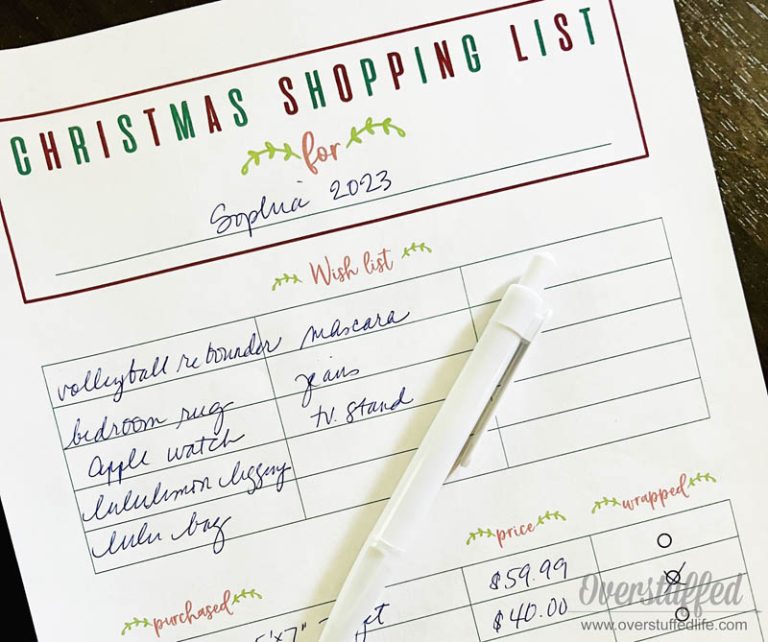 CHRISTMAS SHOPPING LIST
for
Sophia 2023
Wish list
volleyball rebounder mascara
bedroom rug jeans
apple watch tv. stand
lululemon legging
lulu bag
purchased price wrapped
5'x7" $59.99
$40.00
Overstuffed
www.overstuffedlife.com